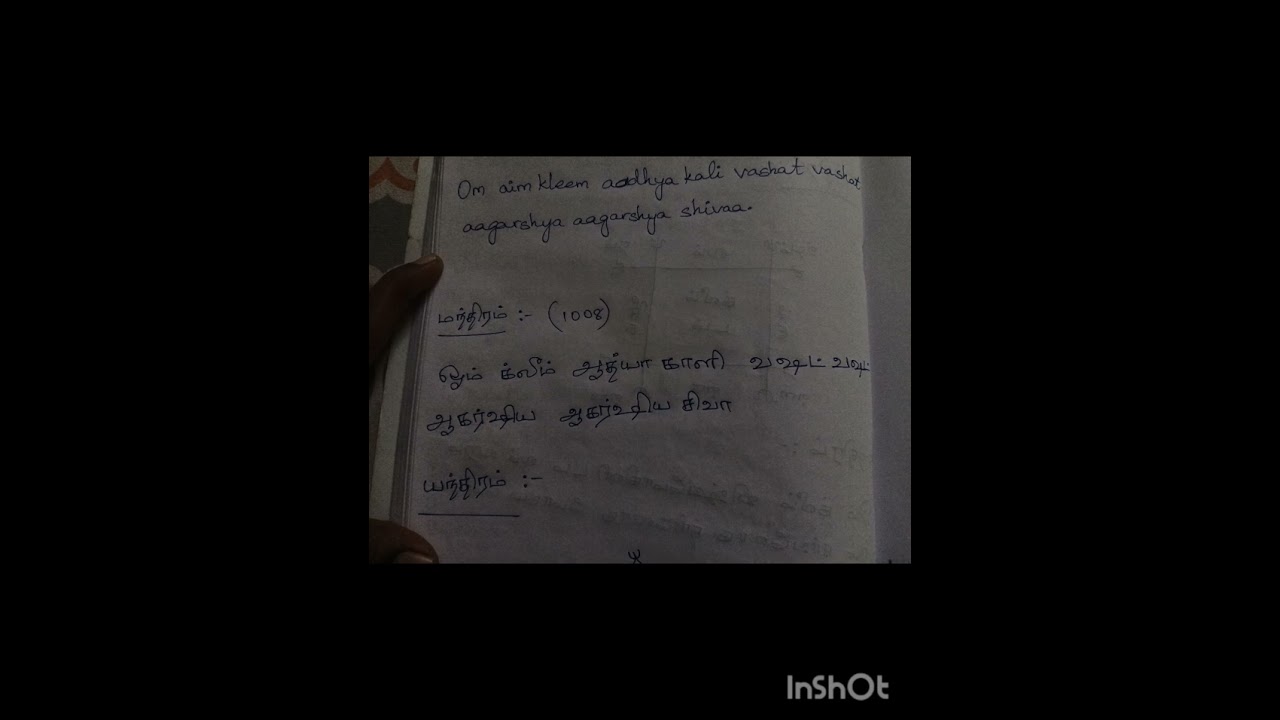 Om aim kleem aadhya kali vashat vashat
aagarshya aagarshya shivaa.
மந்திரம் :- (1008)
ஓம் க்லீம் ஆத்யா காளி வஷட் வஷட்
ஆகர்ஷிய ஆகர்ஷிய சிவா
யந்திரம் :-
InShOt